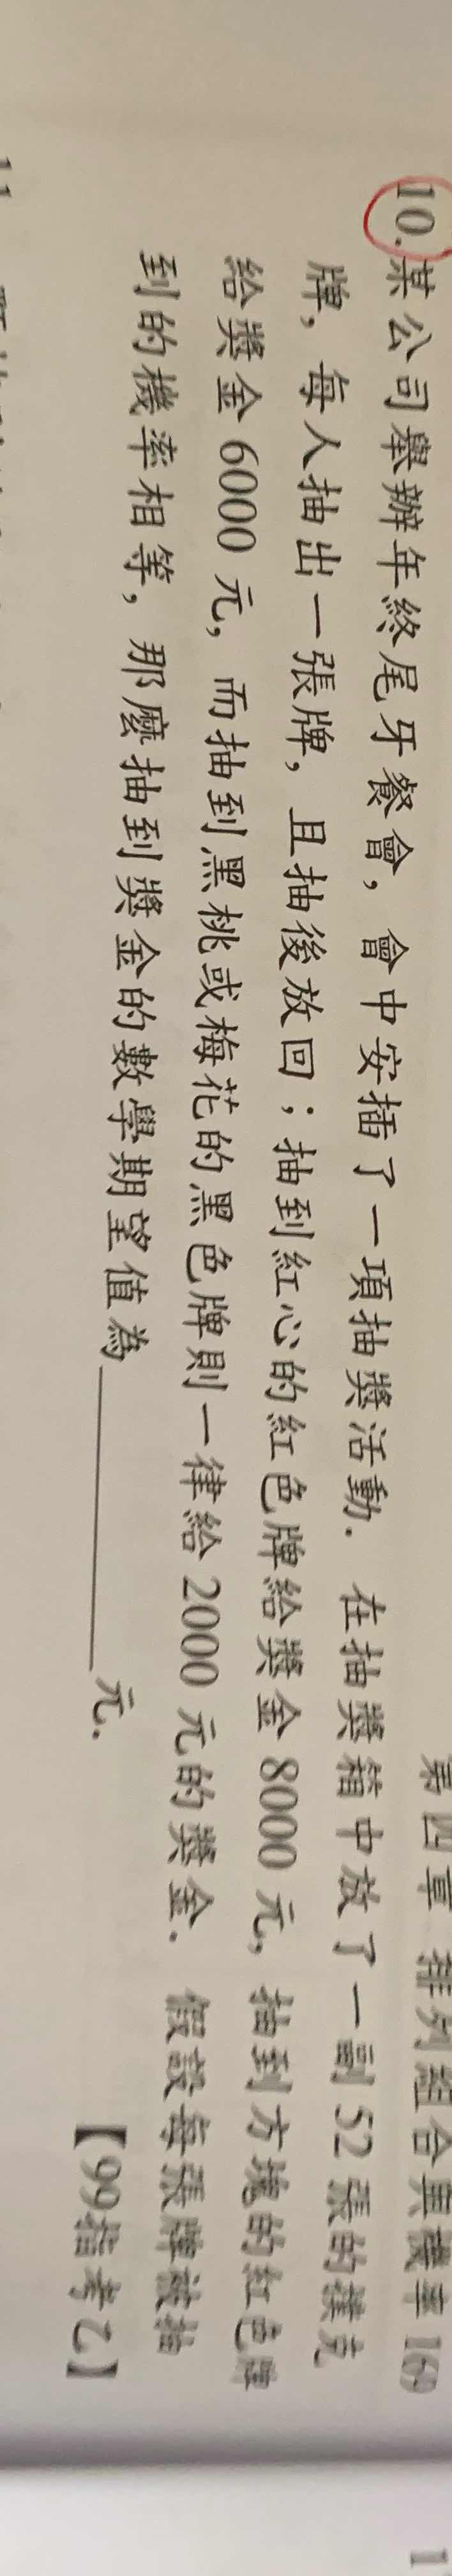 第四章 排列組合與機率 169
10.某公司舉辦年終尾牙餐會，會中安插了一項抽獎活動．在抽獎箱中放了一副52張的撲克
牌，每人抽出一張牌，且抽後放回；抽到紅心的紅色牌給獎金8000元，抽到方塊的紅色牌
給獎金6000元，而抽到黑桃或梅花的黑色牌則一律給2000元的獎金．假設每張牌被抽
到的機率相等，那麼抽到獎金的數學期望值為＿＿＿＿元．
【99指考乙】
11